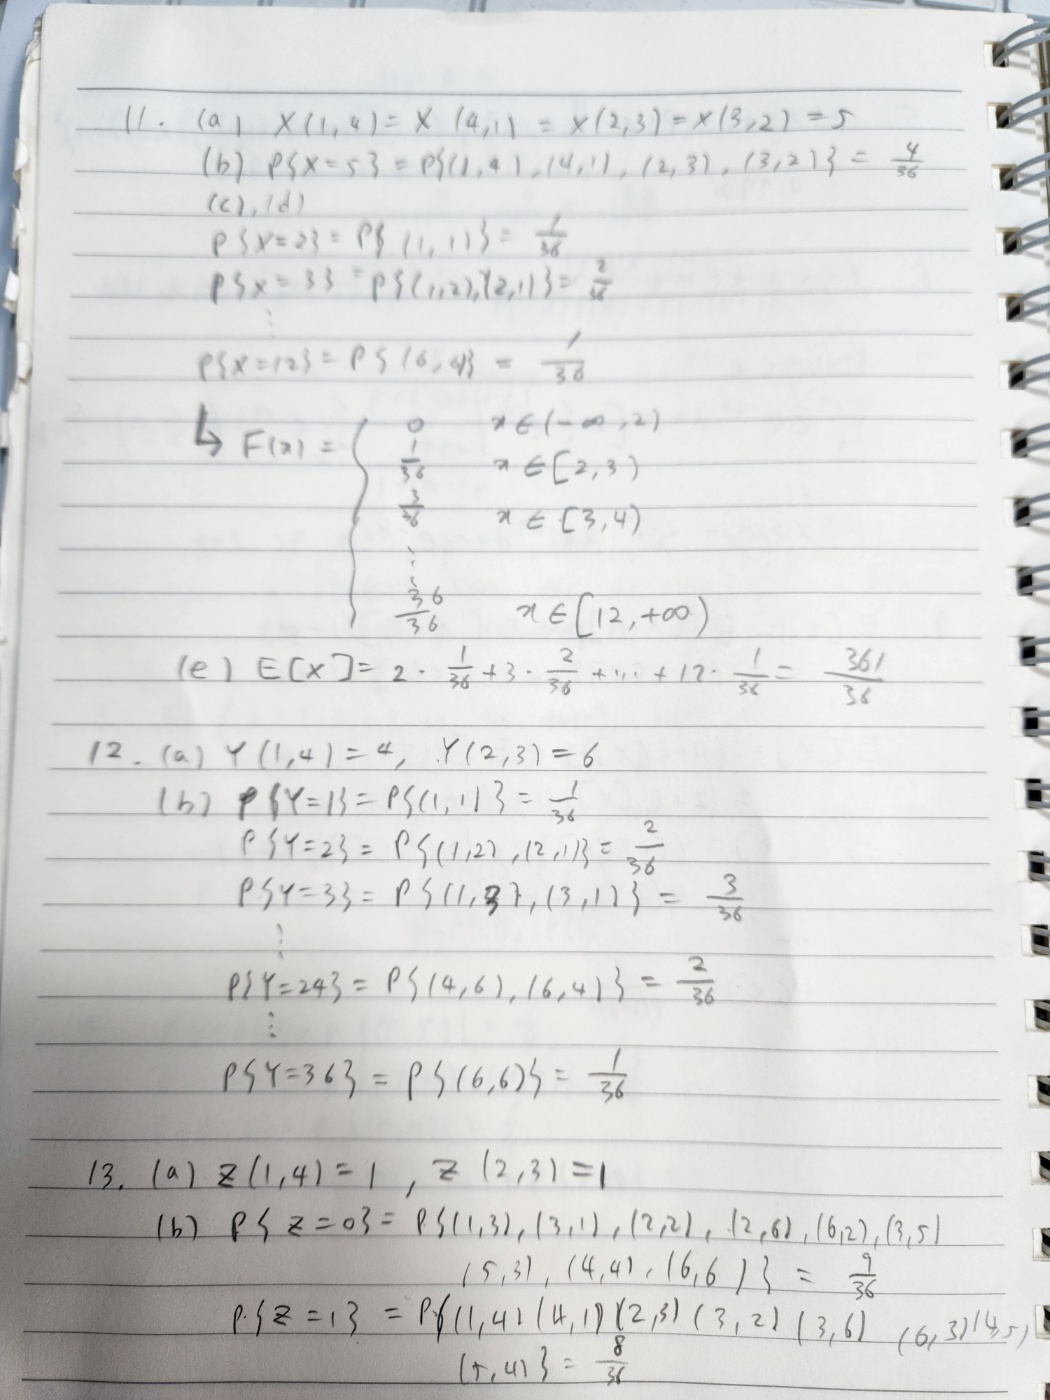 11. (a) X(1,4) = X (4,1) = X(2,3) = X(3,2) = 5
(b) P{X=5} = P{(1,4), (4,1), (2,3), (3,2)} = 4/36
(c), (d)
P{X=2} = P{(1,1)} = 1/36
P{X=3} = P{(1,2),(2,1)} = 2/36
⋮
P{X=12} = P{(6,6)} = 1/36
↳ F(x) = { 0 x∈(-∞,2)
1/36 x∈[2,3)
3/36 x∈[3,4)
⋮
36/36 x∈[12,+∞)
(e) E[X] = 2·1/36 + 3·2/36 + ... + 12·1/36 = 361/36
12. (a) Y(1,4) = 4, Y(2,3) = 6
(b) P{Y=1} = P{(1,1)} = 1/36
P{Y=2} = P{(1,2), (2,1)} = 2/36
P{Y=3} = P{(1,3), (3,1)} = 3/36
⋮
P{Y=24} = P{(4,6), (6,4)} = 2/36
⋮
P{Y=36} = P{(6,6)} = 1/36
13. (a) Z(1,4) = 1, Z(2,3) = 1
(b) P{Z=0} = P{(1,3), (3,1), (2,2), (2,6), (6,2), (3,5)
(5,3), (4,4), (6,6)} = 9/36
P{Z=1} = P{(1,4) (4,1) (2,3) (3,2) (3,6) (6,3) (4,5)
(5,4)} = 8/36